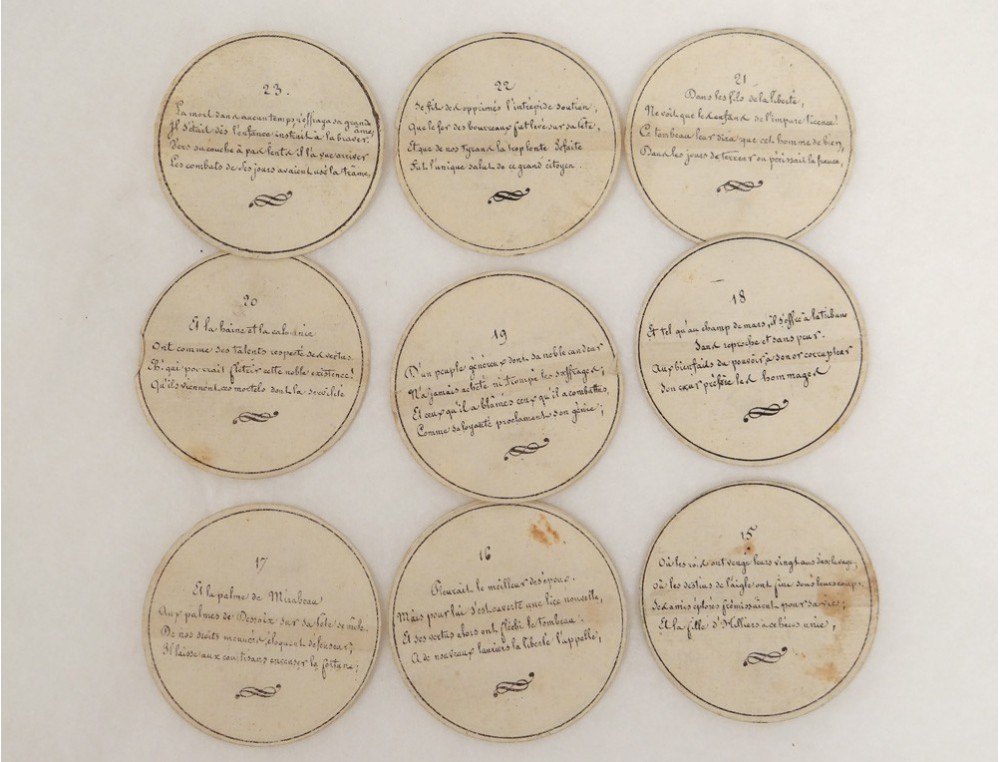 23.
La mort dans aucun temps n'effraya sa grande âme;
Il s'était dès l'enfance instruit à la braver.
Vers sa couche à pas lents il l'a vue arriver
Les combats de ses jours avaient usé la trâme,
22
Ce fil des opprimés l'intrépide soutien,
Que le fer des bourreaux fut levé sur sa tête,
Et que de nos tyrans la trop lente défaite
Fut l'unique salut de ce grand citoyen.
21
Dans les fils de la liberté,
Ne voit que les enfans de l'impure licence!
Ce tombeau leur dira que cet homme de bien,
Dans les jours de terreur où périssait la france,
20
Et la haine et la calomnie
Ont comme ses talents respecté ses vertus.
Eh! qui pourrait flétrir cette noble existence!
Qu'ils viennent ces mortels dont la
19
D'un peuple généreux dont sa noble candeur
N'a jamais acheté ni trompé les suffrages;
Et ceux qu'il a blâmés ceux qu'il a combattus,
Comme sa loyauté proclament son génie;
18
Et tel qu'au champ de mars, il s'offre à la tribune
Sans reproche et sans peur.
Aux bienfaits du pouvoir à son or corrupteur
Son cœur préfère les hommages
17
Et la palme de Mirabeau
Aux palmes de Dessaix sur sa tête se mêle.
De nos droits menacés éloquent défenseur;
Il laisse aux courtisans encenser la fortune;
16
Pleurait le meilleur des époux.
Mais pour lui s'est ouverte une lice nouvelle,
Et ses vertus alors ont fléchi le tombeau.
A de nouveaux lauriers la liberté l'appelle;
15
Où les rois ont vengé leurs vingt ans
Où les destins de l'aigle ont fini sous leurs coups,
Ses amis éplorés frémissaient pour sa vie;
Et la fille d'Hilliers à ce héros unie,